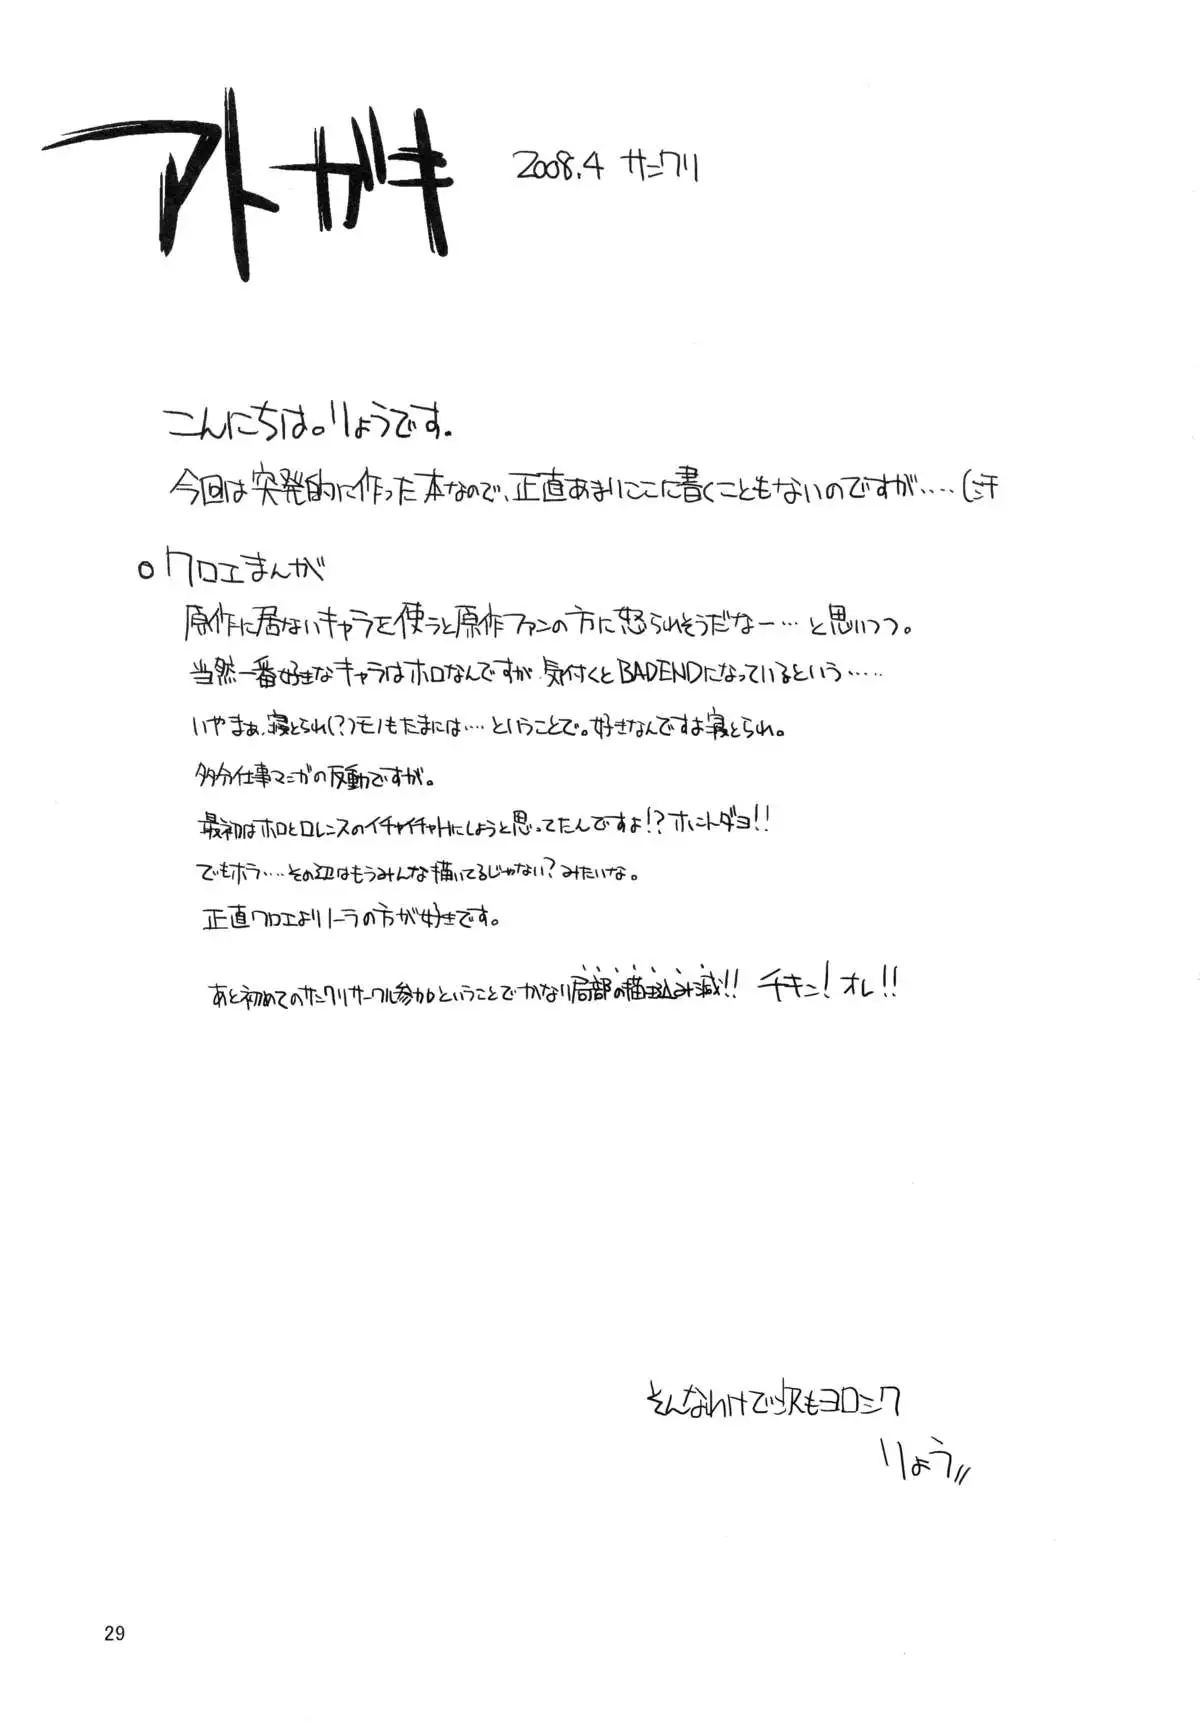 アトガキ
2008.4 サンクリ
こんにちは。りょうです。
今回は突発的に作った本なので、正直あまりここに書くこともないのですが‥‥(汗
○クロエまんが
原作に居ないキャラを使うと原作ファンの方に怒られそうだなー‥‥と思いつつ。
当然一番好きなキャラはホロなんですが 気付くとBADENDになっているという‥‥‥
いやまぁ、寝とられ(?)モノもたまには‥‥ということで。好きなんですよ寝とられ。
多分仕事マンガの反動ですが。
最初はホロとロレンスのイチャイチャHにしようと思ってたんですよ!?ホントダヨ!!
でもホラ‥‥その辺はもうみんな描いてるじゃない?みたいな。
正直クロエよりノーラの方が好きです。
あと初めてのサンクリサークル参加ということでかなり局部の描き込み減!! チキン!オレ!!
そんなわけで次もヨロシク
りょう//
29